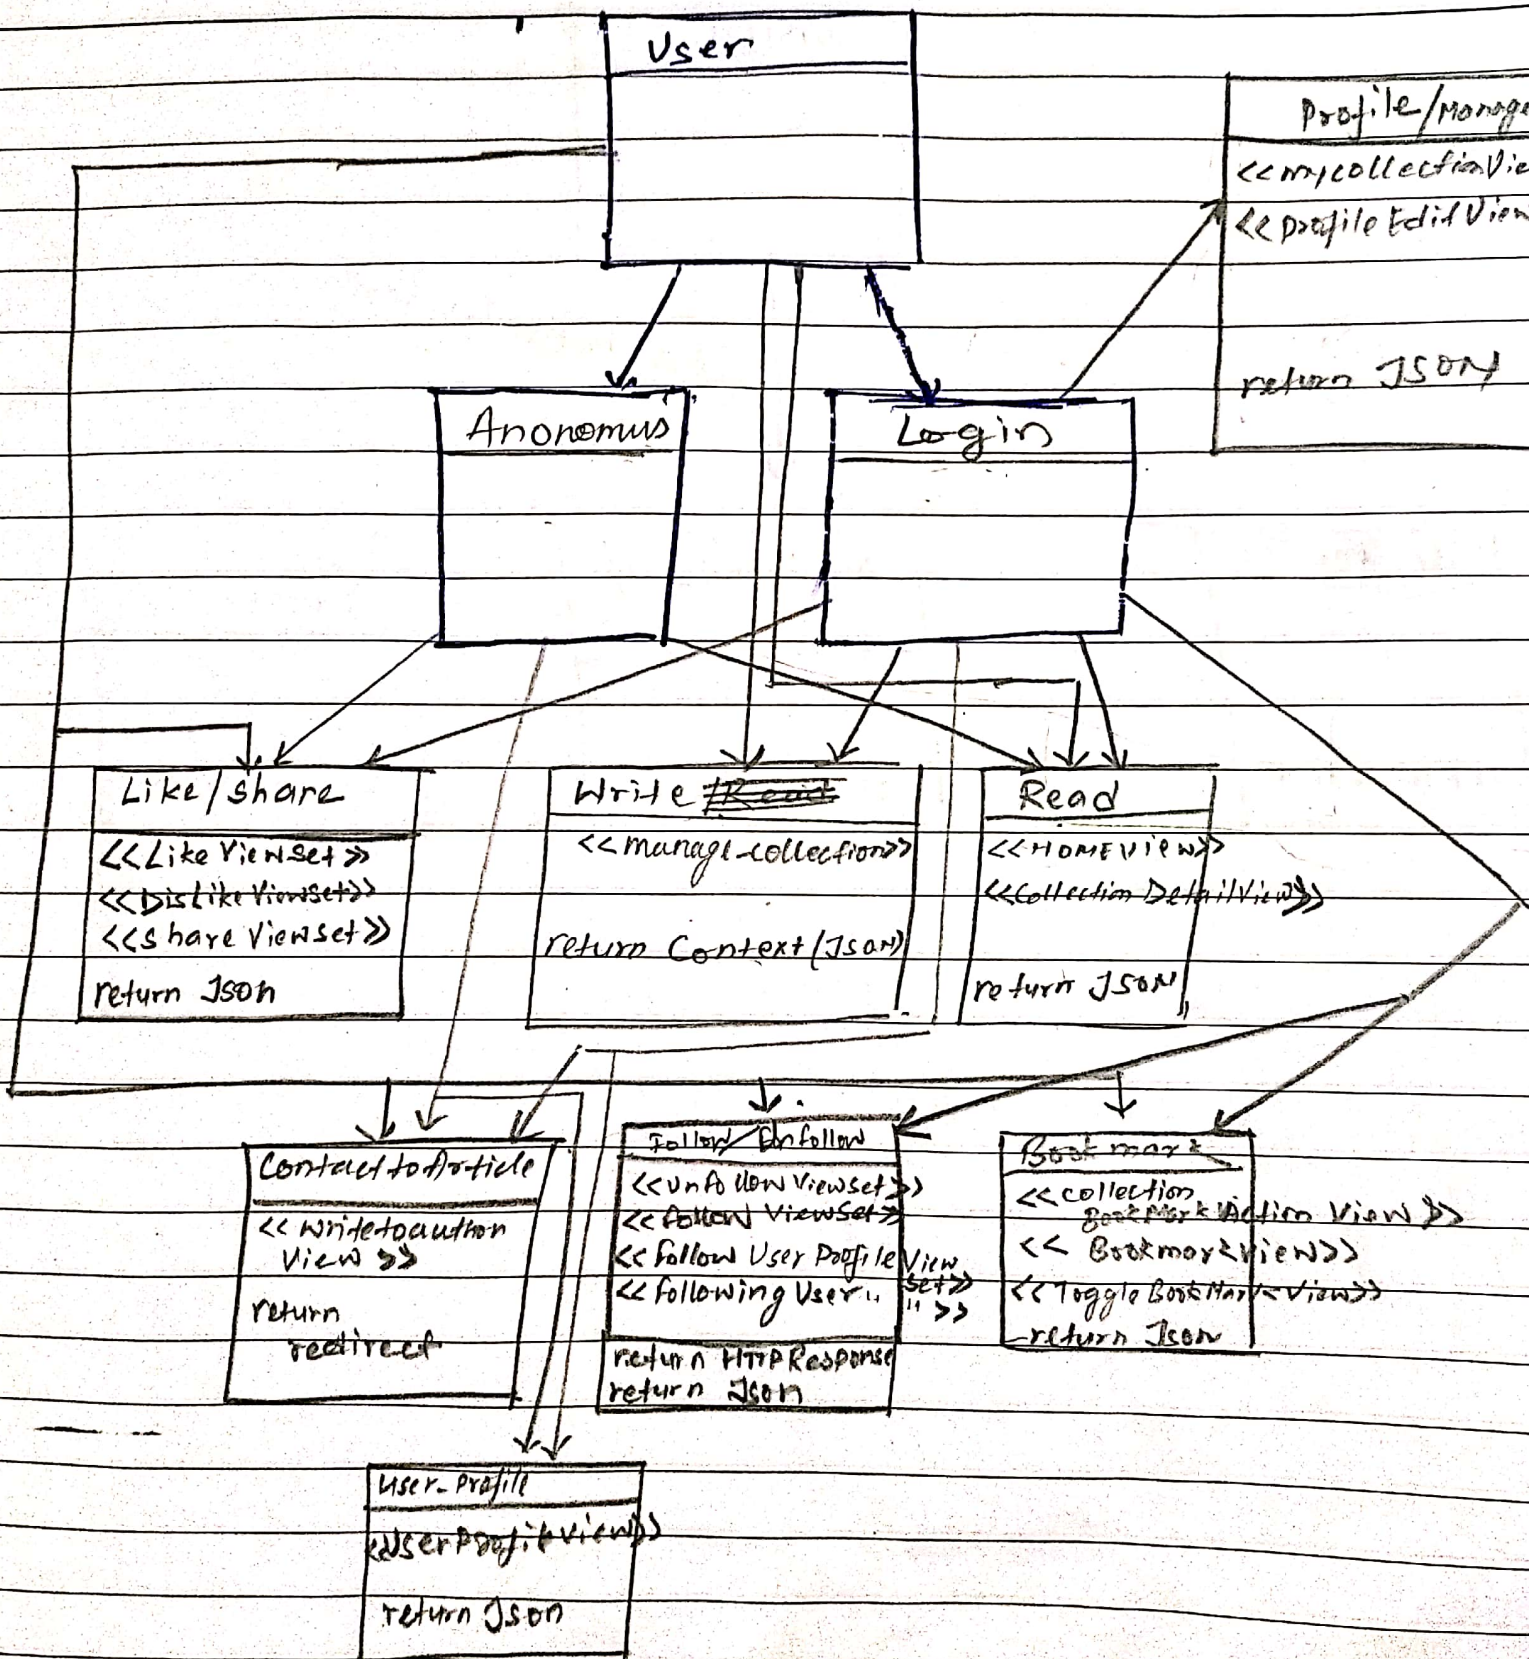 User
Profile/Manage
<<mycollectionVie
<<ProfileEditView
return JSON
Anonomus
Login
Like/Share
<<Like ViewSet>>
<<DisLike ViewSet>>
<<Share ViewSet>>
return Json
Write
<<manage-collection>>
return Context(Json)
Read
<<HOMEView>>
<<Collection DetailView>>
return JSON
ContacttoArticle
<<writetoauthon
View>>
return
redirect
Follow/Unfollow
<<Unfollow ViewSet>>
<<follow ViewSet>>
<<follow User Profile View
Set>>
<<following User " " >>
return HTTPResponse
return Json
Bookmark
<<collection
BookMark Action View>>
<< BookmarkView>>
<<ToggleBookMarkView>>
return Json
User_Profile
<<UserProfileView>>
return Json